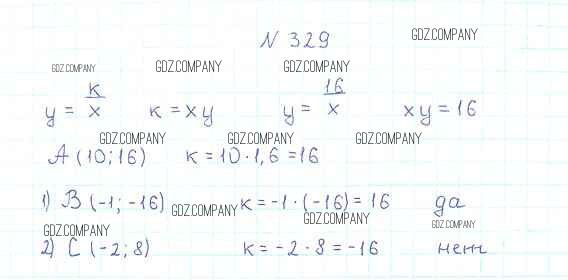 N 329 GDZ.COMPANY
GDZ.COMPANY GDZ.COMPANY GDZ.COMPANY
y = к/x к = xy y = 16/x xy = 16
GDZ.COMPANY GDZ.COMPANY GDZ.COMPANY
A (10; 16) к = 10 · 1,6 = 16
1) B (-1; -16) GDZ.COMPANY к = -1 · (-16) = 16 да
GDZ.COMPANY GDZ.COMPANY GDZ.COMPANY
2) C (-2; 8) к = -2 · 8 = -16 нет